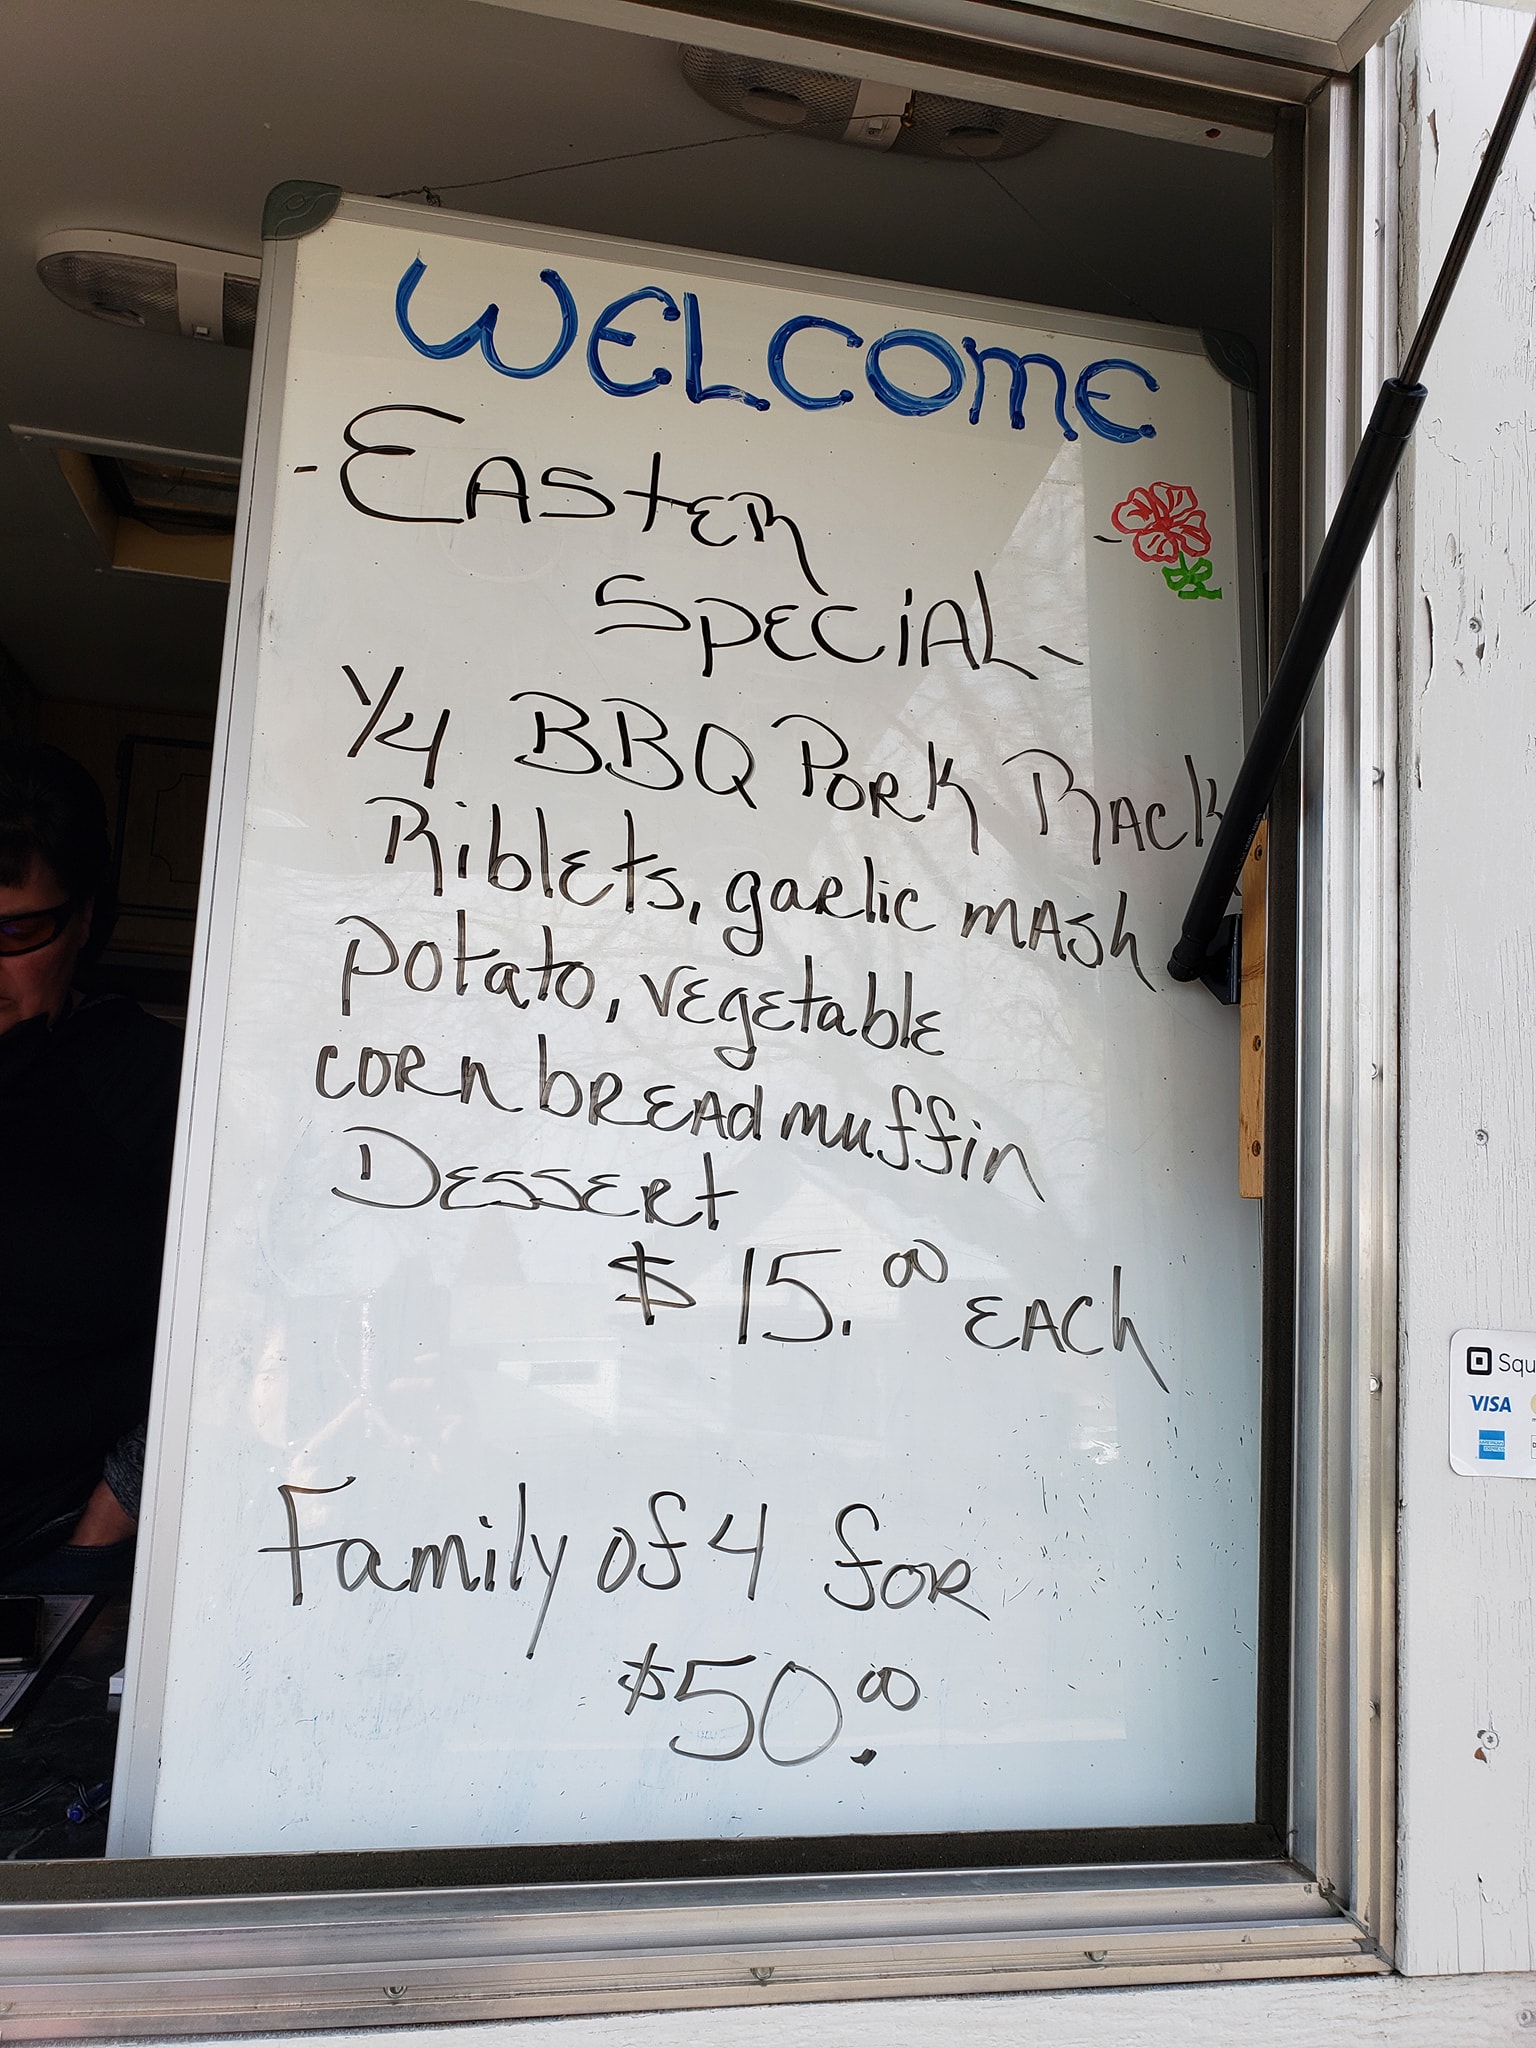 WELCOME
- EASTER -
SPECIAL -
1/4 BBQ PORK RACK
Riblets, garlic MASh
potato, vegetable
corn bread muffin
DESSERT
$15.00 EACh
Family of 4 for
$50.00
Squ
VISA
AMERICAN
EXPRESS